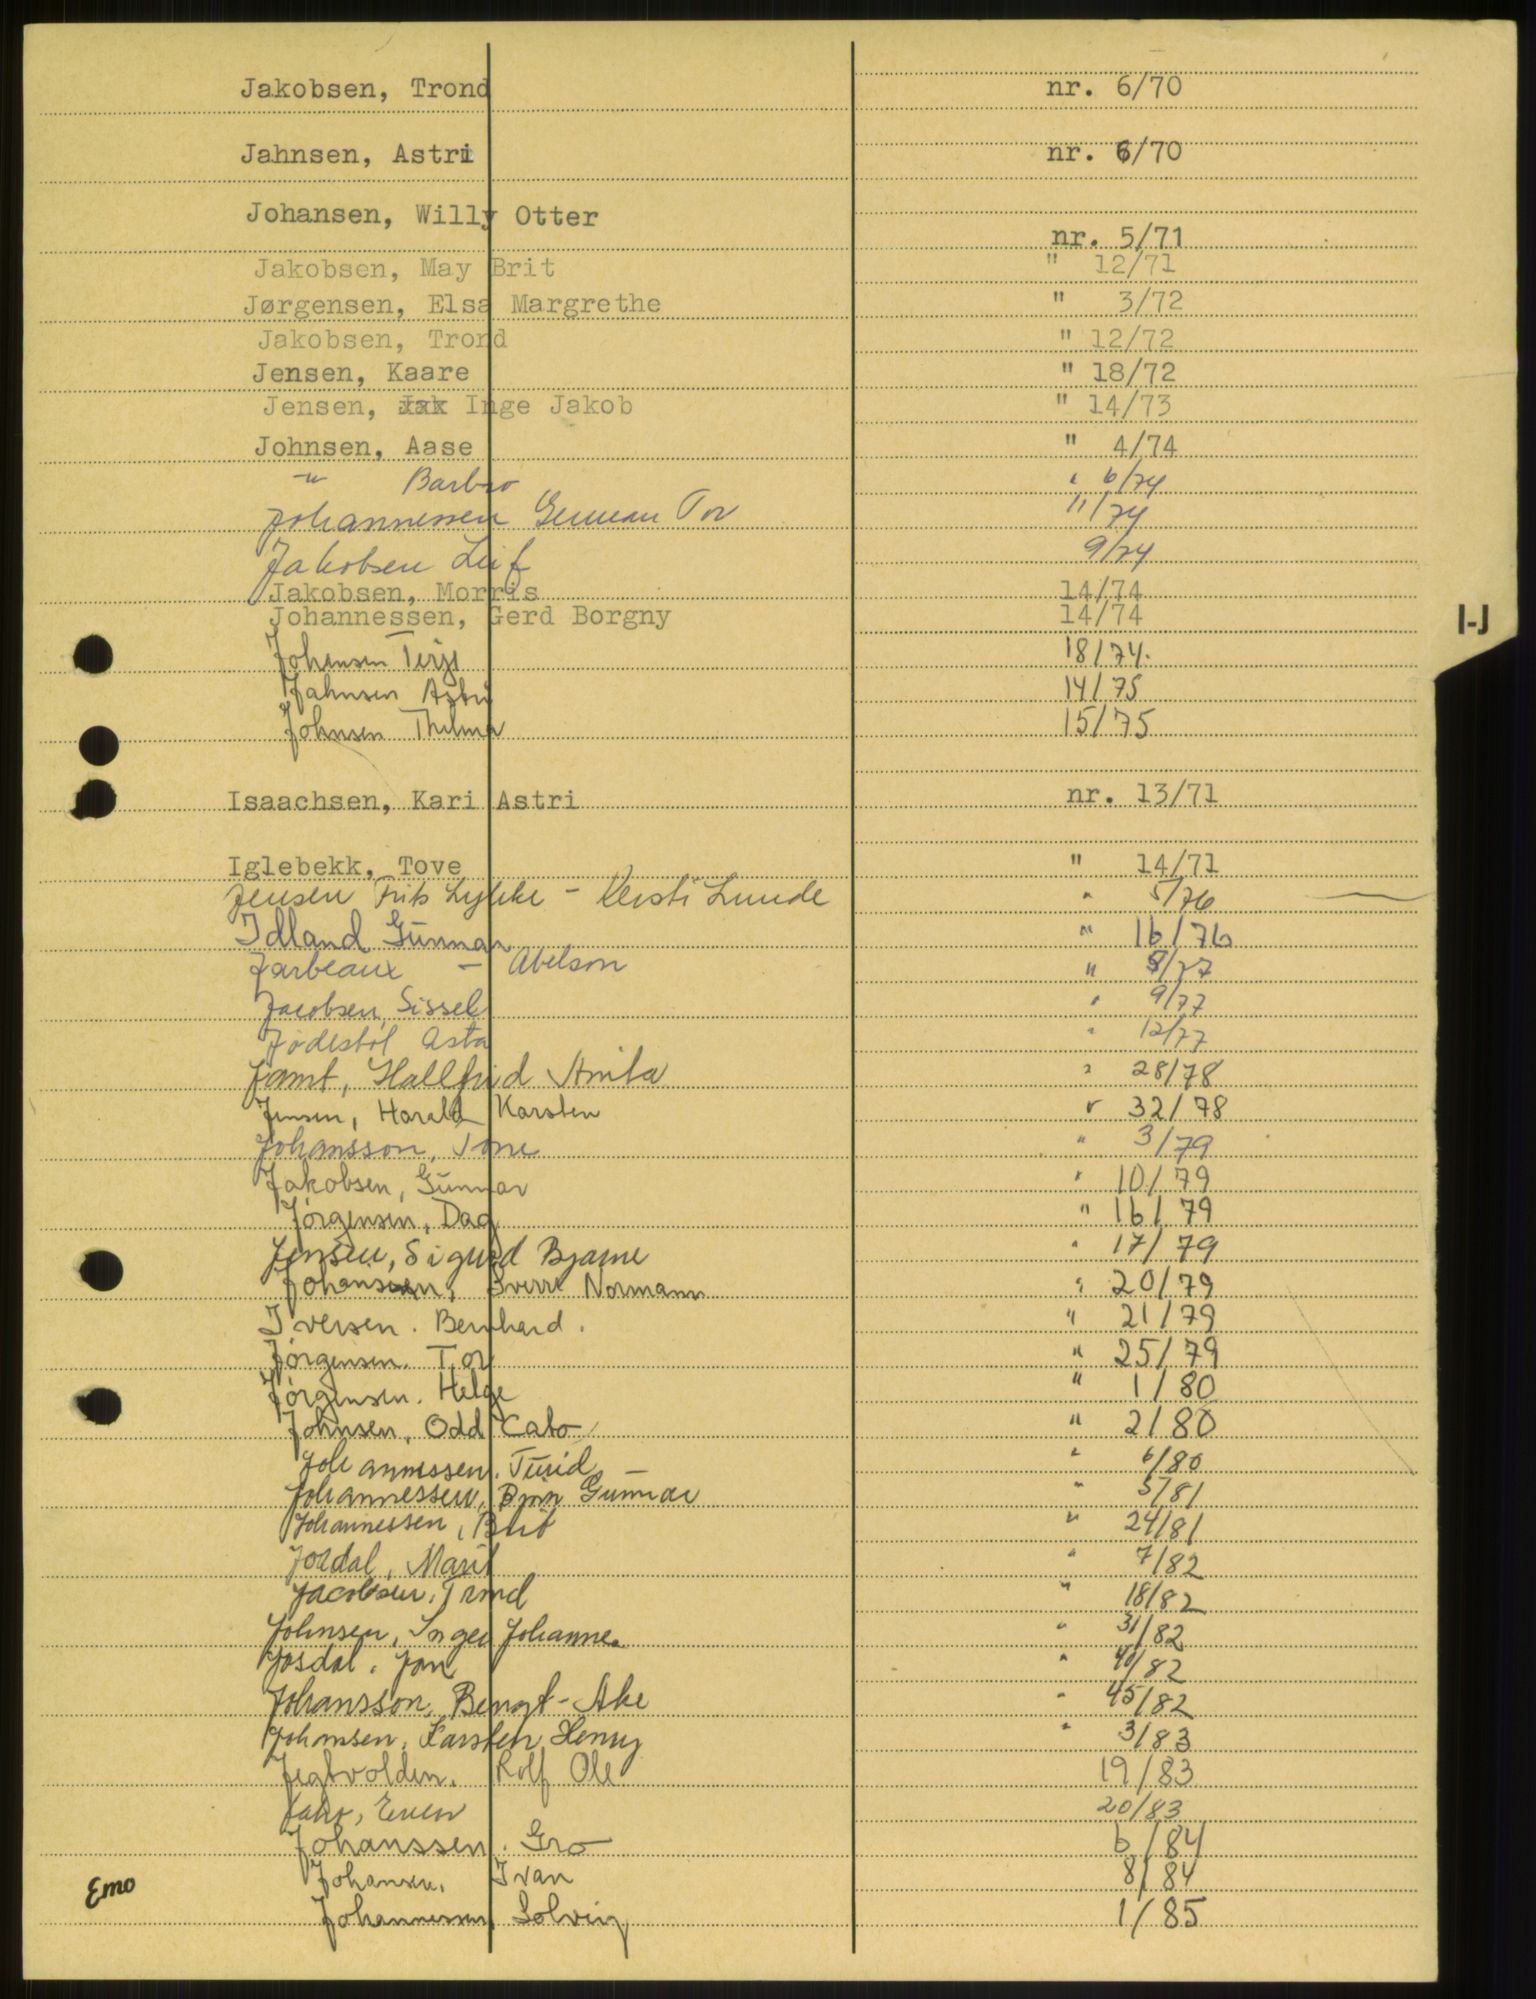 Jakobsen, Trond nr. 6/70
Jahnsen, Astri nr. 6/70
Johansen, Willy Otter
nr. 5/71
Jakobsen, May Brit " 12/71
Jørgensen, Elsa Margrethe " 3/72
Jakobsen, Trond " 12/72
Jensen, Kaare " 18/72
Jensen, Jak Inge Jakob " 14/73
Johnsen, Aase " 4/74
" Barbro " 6/74
Johannessen German Tor 11/74
Jakobsen Leif 9/74
Jakobsen, Morris 14/74
Johannessen, Gerd Borgny 14/74
I-J
Johansen Terje 18/74.
Jahnsen Astri 14/75
Johnsen Thelma 15/75
Isaachsen, Kari Astri nr. 13/71
Iglebekk, Tove " 14/71
Jensen Frits Lykke - Kersti Lunde " 5/76
Idland Gunnar " 16/76
Jarbeaux - Abelson " 8/77
Jacobsen, Sissel " 9/77
Jødestøl Asta " 12/77
Jamt, Hallfrid Anita " 28/78
Jensen, Harald Karsten " 32/78
Johansson, Tone " 3/79
Jakobsen, Gunnar " 10/79
Jørgensen, Dag " 16/79
Jensen, Sigurd Bjarne " 17/79
Johansen, Sverre Normann " 20/79
Iversen. Bernhard. " 21/79
Jørgensen. Tor " 25/79
Jørgensen. Helge " 1/80
Johnsen, Odd Cato " 2/80
Johannessen. Turid " 6/80
Johannessen, Bjørn Gunnar " 5/81
Johannessen, Brit " 24/81
Jordal, Marit " 7/82
Jacobsen, Trond " 18/82
Johnsen, Inger Johanne. " 31/82
Jøsdal, Jan " 40/82
Johansson, Bengt-Åke " 45/82
Johansen, Karsten Henry " 3/83
Jegtvolden. Rolf Ole 19/83
20/83
Johanssen. Gro 6/84
Johansen, Ivan 8/84
Emo
Johannessen, Solveig 1/85